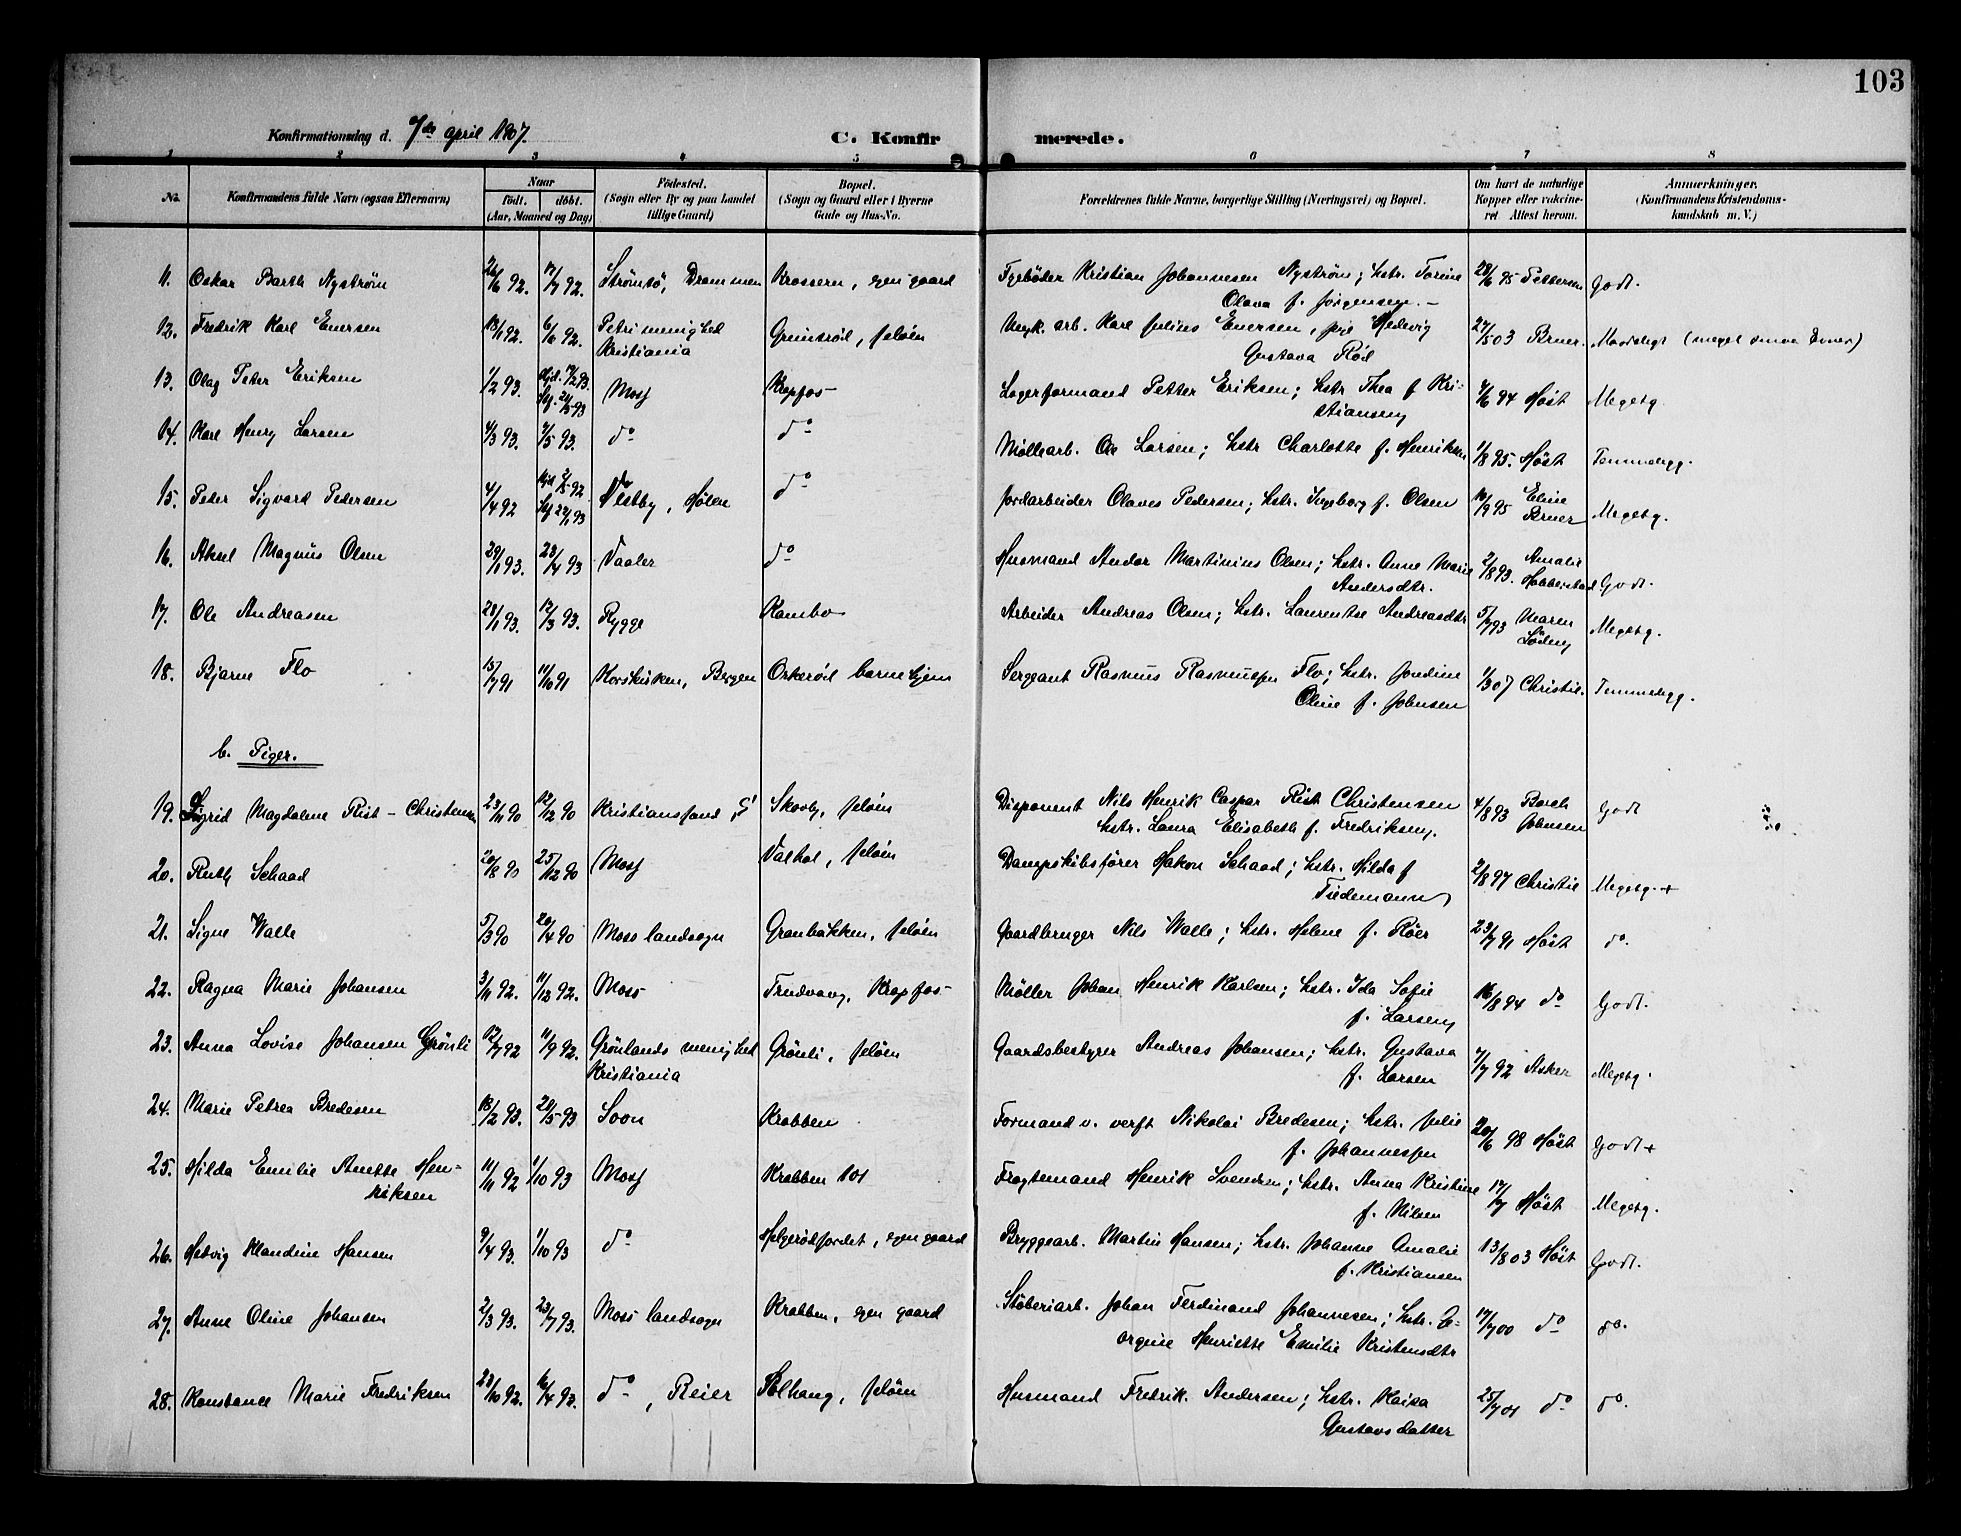 103
Konfirmationsdag d. 7de april 1907.
C. Konfir merede.
1 2 3 4 5 6 7 8
No. Konfirmandens fulde Navn (ogsaa Efternavn) Naar født. døbt. (Aar, Maaned og Dag) Fødested. (Sogn eller By og paa Landet tillige Gaard) Bopæl. (Sogn og Gaard eller i Byerne Gade og Hus-No. Forældrenes fulde Navne, borgerlige Stilling (Næringsvei) og Bopæl. Om havt de naturlige Kopper eller vakcineret Attest herom. Anmerkninger. (Konfirmandens Kristendomskundskab m. V.)
11. Oskar Barth Nyström 26/6 92. 17/7 92. Strömsö, Drammen Krossern, egen gaard Fyrböder Kristian Johannesen Nyström; hstr. Torine Olava f. Jörgensen. 28/6 95 Pettersen Godt.
12. Fredrik Karl Enersen 18/1 92. 6/6 92. Petri menighed Kristiania Grimsröd, Jelöen Karl Julius Enersen, pige Hedvig Gustava Röd 27/5 03 Bruer.
13. Olaf Peter Eriksen 1/2 93. Hjd. 14/2 93. Moss Kropfos Lagerformand Petter Eriksen; hstr Thea f Kristiansen 7/6 94 Höst Megetg.
14. Karl Henry Larsen 4/3 93. 7/5 93. do do Möllearb. Ole Larsen; hstr Charlotte f. Henriksen 1/8 95. Höst Temmeligg.
15. Peter Sigvard Pedersen 4/4 92 Hjd 2/5 92 Vestby, Hölen do Jordarbeider Olaves Pedersen; hstr. Ingeborg f. Olsen 10/9 95 Eline Bruer Megetg.
16. Aksel Magnus Olsen 29/1 93. 23/4 93 Vaaler do Husmand Andor Martinius Olsen; hstr. Anne Marie Andersdtr. 2/8 93. Amalie Hobberstad Godt.
17. Ole Andreasen 28/1 93. 12/3 93. Rygge Kambo Arbeider Andreas Olsen; hstr. Laurentse Andreasdtr 5/7 93 Maren Megetg.
18. Bjarne Flo 15/7 91 11/10 91 Korskirken, Bergen Orkeröd barnehjem Sergeant Rasmus Rasmussen Flo; hstr. Jondine Oline f. Johnsen 1/3 07 Christie. Temmeligg.
b. Piger.
19. Sigrid Magdalene Rist-Christensen 23/11 90 12/12 90 Kristianssand S Skovby, Jelöen Disponent Nils Henrik Caspar Rist Christensen hstr. Laura Elisabeth f. Fredriksen. 4/8 93 Borch Johnsen Godt
20. Ruth Schaad 20/8 90 25/12 90 Moss Valhal, Jelöen Dampskibsförer Hakon Schaad; hstr. Hilda f Tidemann 2/8 97 Christie Megetg.+
21. Signe Walle 5/3 90 20/4 90 Moss landsogn Granbakken, Jelöen Gaardbruger Nils Walle; hstr. Helene f. Röer 23/7 91 Höst do.
22. Ragna Marie Johansen 3/11 92. 11/12 92. Moss Trudvang, Kropfos Möller Johan Henrik Karlsen; hstr. Ida Sofie f. Larsen 16/8 94 do Godt.
23. Anna Lovise Johansen Grönli 12/7 92 11/9 92. Grönlands menighed Kristiania Grönli, Jelöen Gaardsbestyrer Andreas Johansen; hstr. Gustava f. Larsen 7/7 92 Asker Megetg.
24. Marie Petrea Bredesen 18/2 93. 28/5 93 Soon Krabben Formand v. verft Nikolai Bredesen; hstr. Julie f. Johannessen 20/6 98 Höst Godt+
25. Hilda Emilie Anette Henriksen 11/11 92 1/10 93 Moss Krabben 101 Fragtemand Henrik Svendsen; hstr. Anna Kristine f. Nilsen 17/7 Höst Megetg.
26. Hedvig Klandine Hansen 9/4 93. 1/10 93 do Helgerödfordet, egen gaard Bryggearb. Martin Hansen; hstr. Johanne Amalie f. Kristiansen 13/8 03 Höst Godt.
27. Anne Oline Johansen 2/3 93. 23/7 93. Moss landsogn Krabben, egen gaard Stöberiarb. Johan Ferdinand Johannesen; hstr. Georgine Henriette Emilie Kristensdtr 17/7 00 do do.
28. Konstance Marie Fredriksen 23/10 92. 16/4 93. do, Reier Solhaug, Jelöen Husmand Fredrik Andersen; hstr. Kaisa Gustavsdatter 25/7 01 do do.